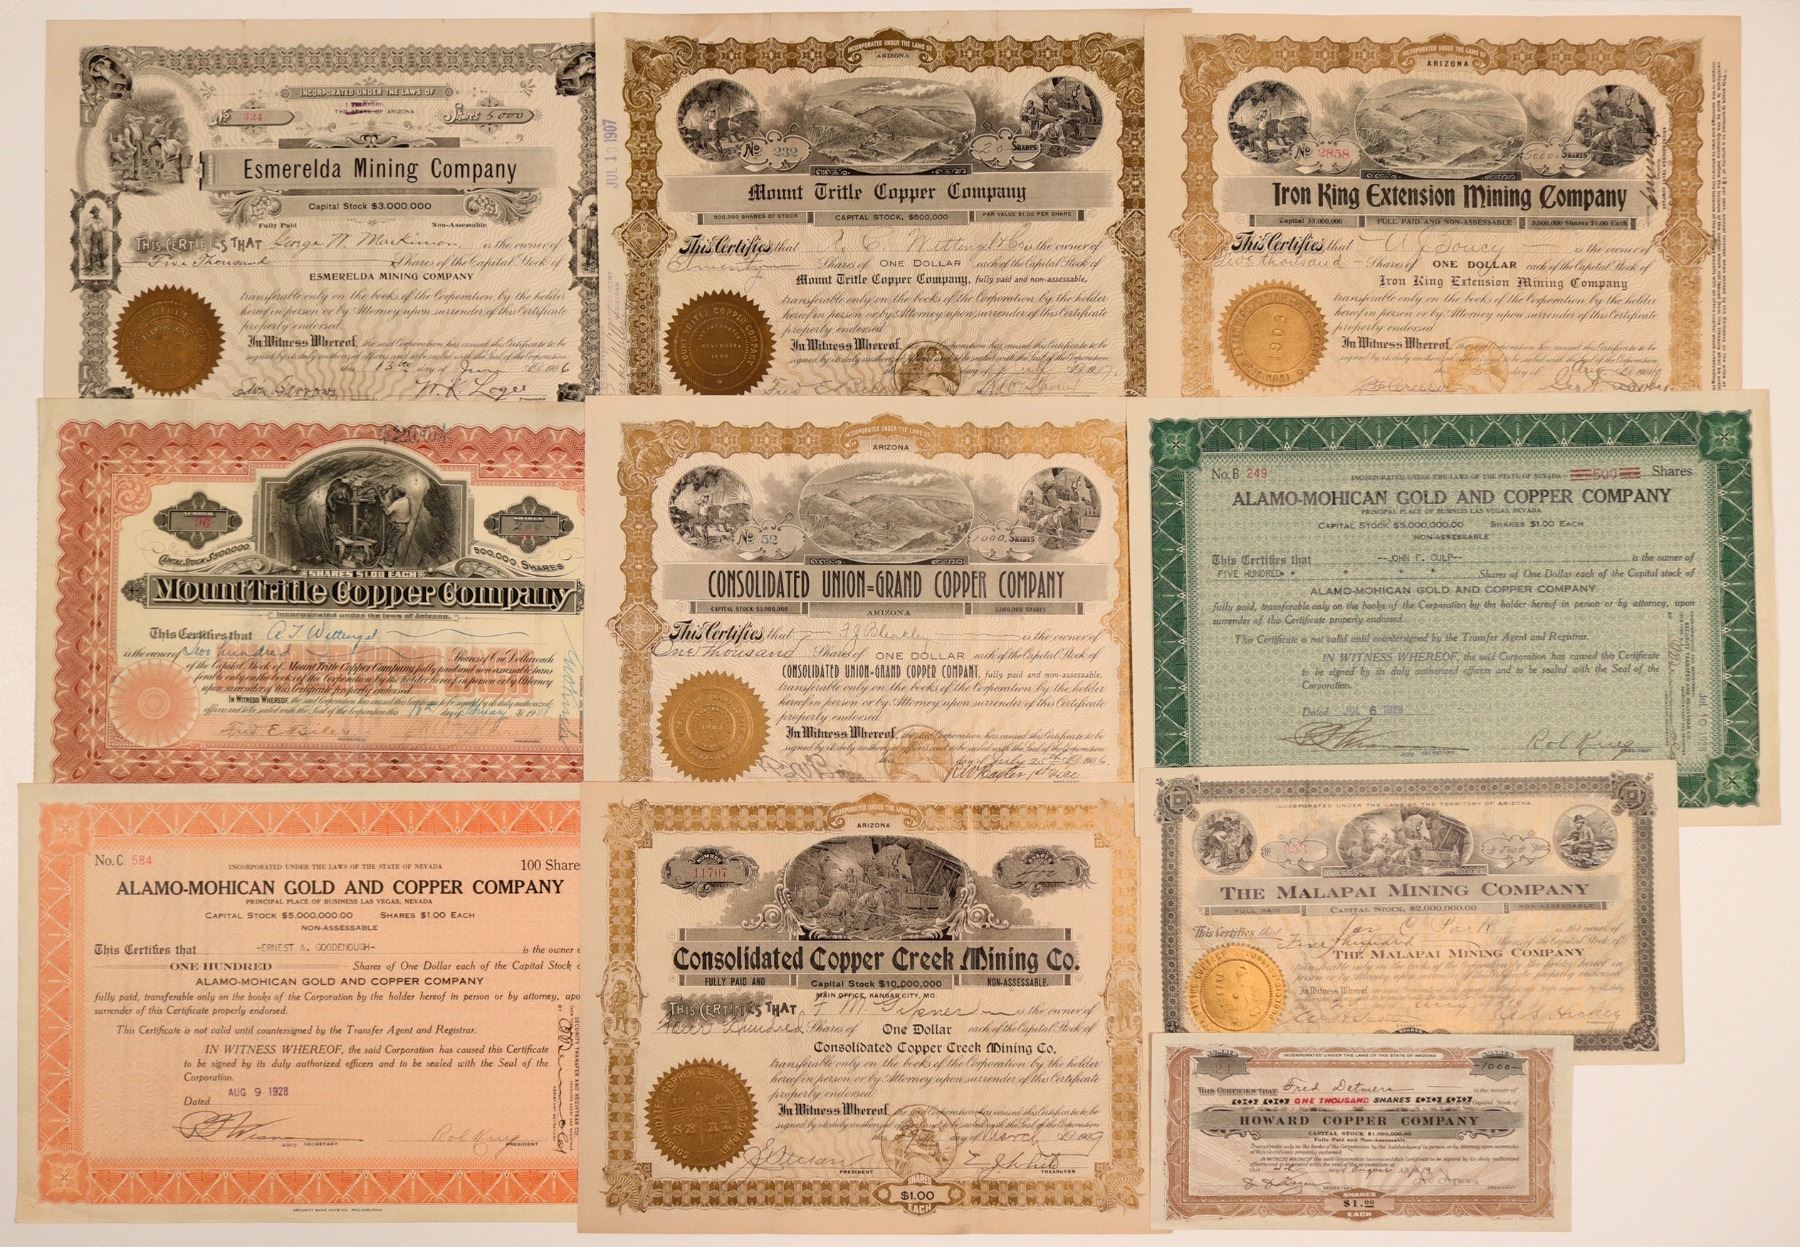 INCORPORATED UNDER THE LAWS OF
THE STATE OF ARIZONA
No 324
Shares 5000
Esmerelda Mining Company
Capital Stock $3.000,000
Fully Paid Non-Assessable
THIS CERTIFIES THAT George W. MacKinnon is the owner of
Five Thousand Shares of the Capital Stock of
ESMERELDA MINING COMPANY
transferable only on the books of the Corporation by the holder
hereof in person or by Attorney upon surrender of this Certificate
properly endorsed.
In Witness Whereof, the said Corporation has caused this Certificate to be
signed by its duly authorized officers and to be sealed with the Seal of the Corporation
this 13th day of June A.D. 1906
W. K. Logee
JUL 1 1907
INCORPORATED UNDER THE LAWS OF
ARIZONA
No 232
20 SHARES
Mount Tritle Copper Company
500,000 SHARES OF STOCK CAPITAL STOCK, $500,000 PAR VALUE $1.00 PER SHARE
This Certifies that is the owner of
Twenty Shares of ONE DOLLAR each of the Capital Stock of
Mount Tritle Copper Company, fully paid and non-assessable,
transferable only on the books of the Corporation by the holder
hereof in person or by Attorney upon surrender of this Certificate
properly endorsed.
In Witness Whereof, the said Corporation has caused this Certificate to be
signed by its duly authorized officers and to be sealed with the Seal of the Corporation
day of July A.D. 1907
MOUNT TRITLE COPPER COMPANY
INCORPORATED UNDER THE LAWS OF
ARIZONA
No 2858
5000 SHARES
Iron King Extension Mining Company
Capital $5.000,000 FULL PAID AND NON-ASSESSABLE 5,000,000 Shares $1.00 Each
This Certifies that A. Soucy is the owner of
Five thousand Shares of ONE DOLLAR each of the Capital Stock of
Iron King Extension Mining Company
transferable only on the books of the Corporation by the holder
hereof in person or by Attorney upon surrender of this Certificate
properly endorsed
In Witness Whereof, the said Corporation has caused this Certificate to be
signed by its duly authorized officers and to be sealed with the Seal of the Corporation
NUMBER
96
SHARES
CAPITAL STOCK $500,000.
500,000 SHARES
SHARES $1.00 EACH
Mount Tritle Copper Company
Incorporated under the laws of Arizona.
This Certifies that A T Wettengel
is the owner of Two hundred Shares of One Dollar each
of the Capital Stock of Mount Tritle Copper Company fully paid and non-assessable trans-
ferable only on the books of the Corporation by the holder hereof in person or by Attorney
upon surrender of this Certificate properly endorsed.
IN WITNESS WHEREOF, the said Corporation has caused this certificate to be signed by its duly authorized
officers and to be sealed with the Seal of the Corporation this 18th day of
INCORPORATED UNDER THE LAWS OF
ARIZONA
No 52
1000 SHARES
CONSOLIDATED UNION=GRAND COPPER COMPANY
CAPITAL STOCK $1,000,000 ARIZONA 1,000,000 SHARES
This Certifies that F J Bleakley is the owner of
One thousand Shares of ONE DOLLAR each of the Capital Stock of
CONSOLIDATED UNION-GRAND COPPER COMPANY, fully paid and non-assessable,
transferable only on the books of the Corporation by the holder
hereof in person or by Attorney upon surrender of this Certificate
properly endorsed
In Witness Whereof, the said Corporation has caused this Certificate to be
signed by its duly authorized officers and to be sealed with the Seal of the Corporation
this day of July 25th A.D. 1906.
No. B 249
INCORPORATED UNDER THE LAWS OF THE STATE OF NEVADA
500 Shares
ALAMO-MOHICAN GOLD AND COPPER COMPANY
PRINCIPAL PLACE OF BUSINESS LAS VEGAS, NEVADA
CAPITAL STOCK $5,000,000.00 SHARES $1.00 EACH
NON-ASSESSABLE
This Certifies that --JOHN F. CULP-- is the owner of
FIVE HUNDRED * * * * Shares of One Dollar each of the Capital stock of
ALAMO-MOHICAN GOLD AND COPPER COMPANY
fully paid, transferable only on the books of the Corporation by the holder hereof in person or by attorney, upon
surrender of this Certificate properly endorsed.
This Certificate is not valid until countersigned by the Transfer Agent and Registrar.
IN WITNESS WHEREOF, the said Corporation has caused this Certificate
to be signed by its duly authorized officers and to be sealed with the Seal of the
Corporation.
Dated JUL 6 1928
Rob King
ASS'T SECRETARY PRESIDENT
JUL 10 1928
No. C 584
INCORPORATED UNDER THE LAWS OF THE STATE OF NEVADA
100 Share
ALAMO-MOHICAN GOLD AND COPPER COMPANY
PRINCIPAL PLACE OF BUSINESS LAS VEGAS, NEVADA
CAPITAL STOCK $5,000,000.00 SHARES $1.00 EACH
NON-ASSESSABLE
This Certifies that -ERNEST A. GOODENOUGH- is the owner
ONE HUNDRED Shares of One Dollar each of the Capital Stock
ALAMO-MOHICAN GOLD AND COPPER COMPANY
fully paid, transferable only on the books of the Corporation by the holder hereof in person or by attorney, upo
surrender of this Certificate properly endorsed.
This Certificate is not valid until countersigned by the Transfer Agent and Registrar.
IN WITNESS WHEREOF, the said Corporation has caused this Certificate
to be signed by its duly authorized officers and to be sealed with the Seal of the
Corporation.
AUG 9 1928
Dated
Rob King
ASS'T SECRETARY PRESIDENT
SECURITY BANK NOTE CO. PHILADELPHIA
INCORPORATED UNDER THE LAWS OF
ARIZONA
NUMBER
11707
SHARES
400
Consolidated Copper Creek Mining Co.
FULLY PAID AND Capital Stock $10,000,000 NON-ASSESSABLE.
MAIN OFFICE, KANSAS CITY, MO.
THIS CERTIFIES THAT is the owner of
Four Hundred Shares of One Dollar each of the Capital Stock of
Consolidated Copper Creek Mining Co.
transferable only on the books of the Corporation by the holder
hereof in person or by Attorney upon surrender of this Certificate
properly endorsed.
In Witness Whereof, the said Corporation has caused this Certificate to be
signed by its duly authorized officers and to be sealed with the Seal of the Corporation
this day of March A.D. 1909
E. J. White
PRESIDENT TREASURER
SEAL
SHARES
$1.00
EACH
INCORPORATED UNDER THE LAWS OF THE TERRITORY OF ARIZONA
THE MALAPAI MINING COMPANY
FULL PAID CAPITAL STOCK, $2,000,000.00 NON-ASSESSABLE
This Certifies that Jay C. Park is the owner of
Five Hundred Shares of the Capital Stock of
THE MALAPAI MINING COMPANY
transferable only on the books of the Corporation by the holder hereof in
person or by Attorney upon surrender of this Certificate properly endorsed.
In Witness Whereof
NUMBER
INCORPORATED UNDER THE LAWS OF THE STATE OF ARIZONA
SHARES
-1000-
THIS CERTIFIES THAT Fred Detmers is the owner of
ONE THOUSAND SHARES Capital Stock of
HOWARD COPPER COMPANY
CAPITAL STOCK $1,000,000.00
Fully Paid and Non-Assessable
Transferable only on the books of the Corporation by the holder hereof in person or by Attorney upon surrender
of this Certificate properly endorsed.
IN WITNESS WHEREOF the said Corporation has caused this Certificate to be signed by its duly authorized
officers and to be sealed with the seal of the corporation
day of August
SHARES
$1.00
EACH